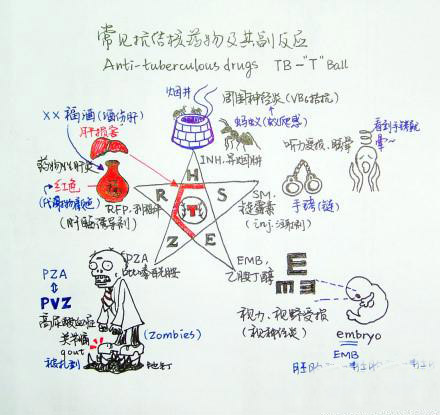 常见抗结核药物及其副反应
Anti-tuberculous drugs TB-"T" Ball
烟井
周围神经炎(VB6拮抗)
蚂蚁(蚁爬感)
INH.异烟肼
XX福酒(酒伤肝)
肝损害
药物性肝炎
红色
(代谢物颜色)
RFP.利福平
(肝酶诱导剂)
H
R
S
T
Z
E
听力受损、眩晕
看到手铐就晕~
手铐(链)
SM.
链霉素
(inj.注射剂)
PZA
吡嗪酰胺
EMB,
乙胺丁醇
E
m
视力、视野受损
(视神经炎)
embryo
EMB
PZA
PVZ
高尿酸血症
关节痛
gout
(Zombies)
被扎到
地钉